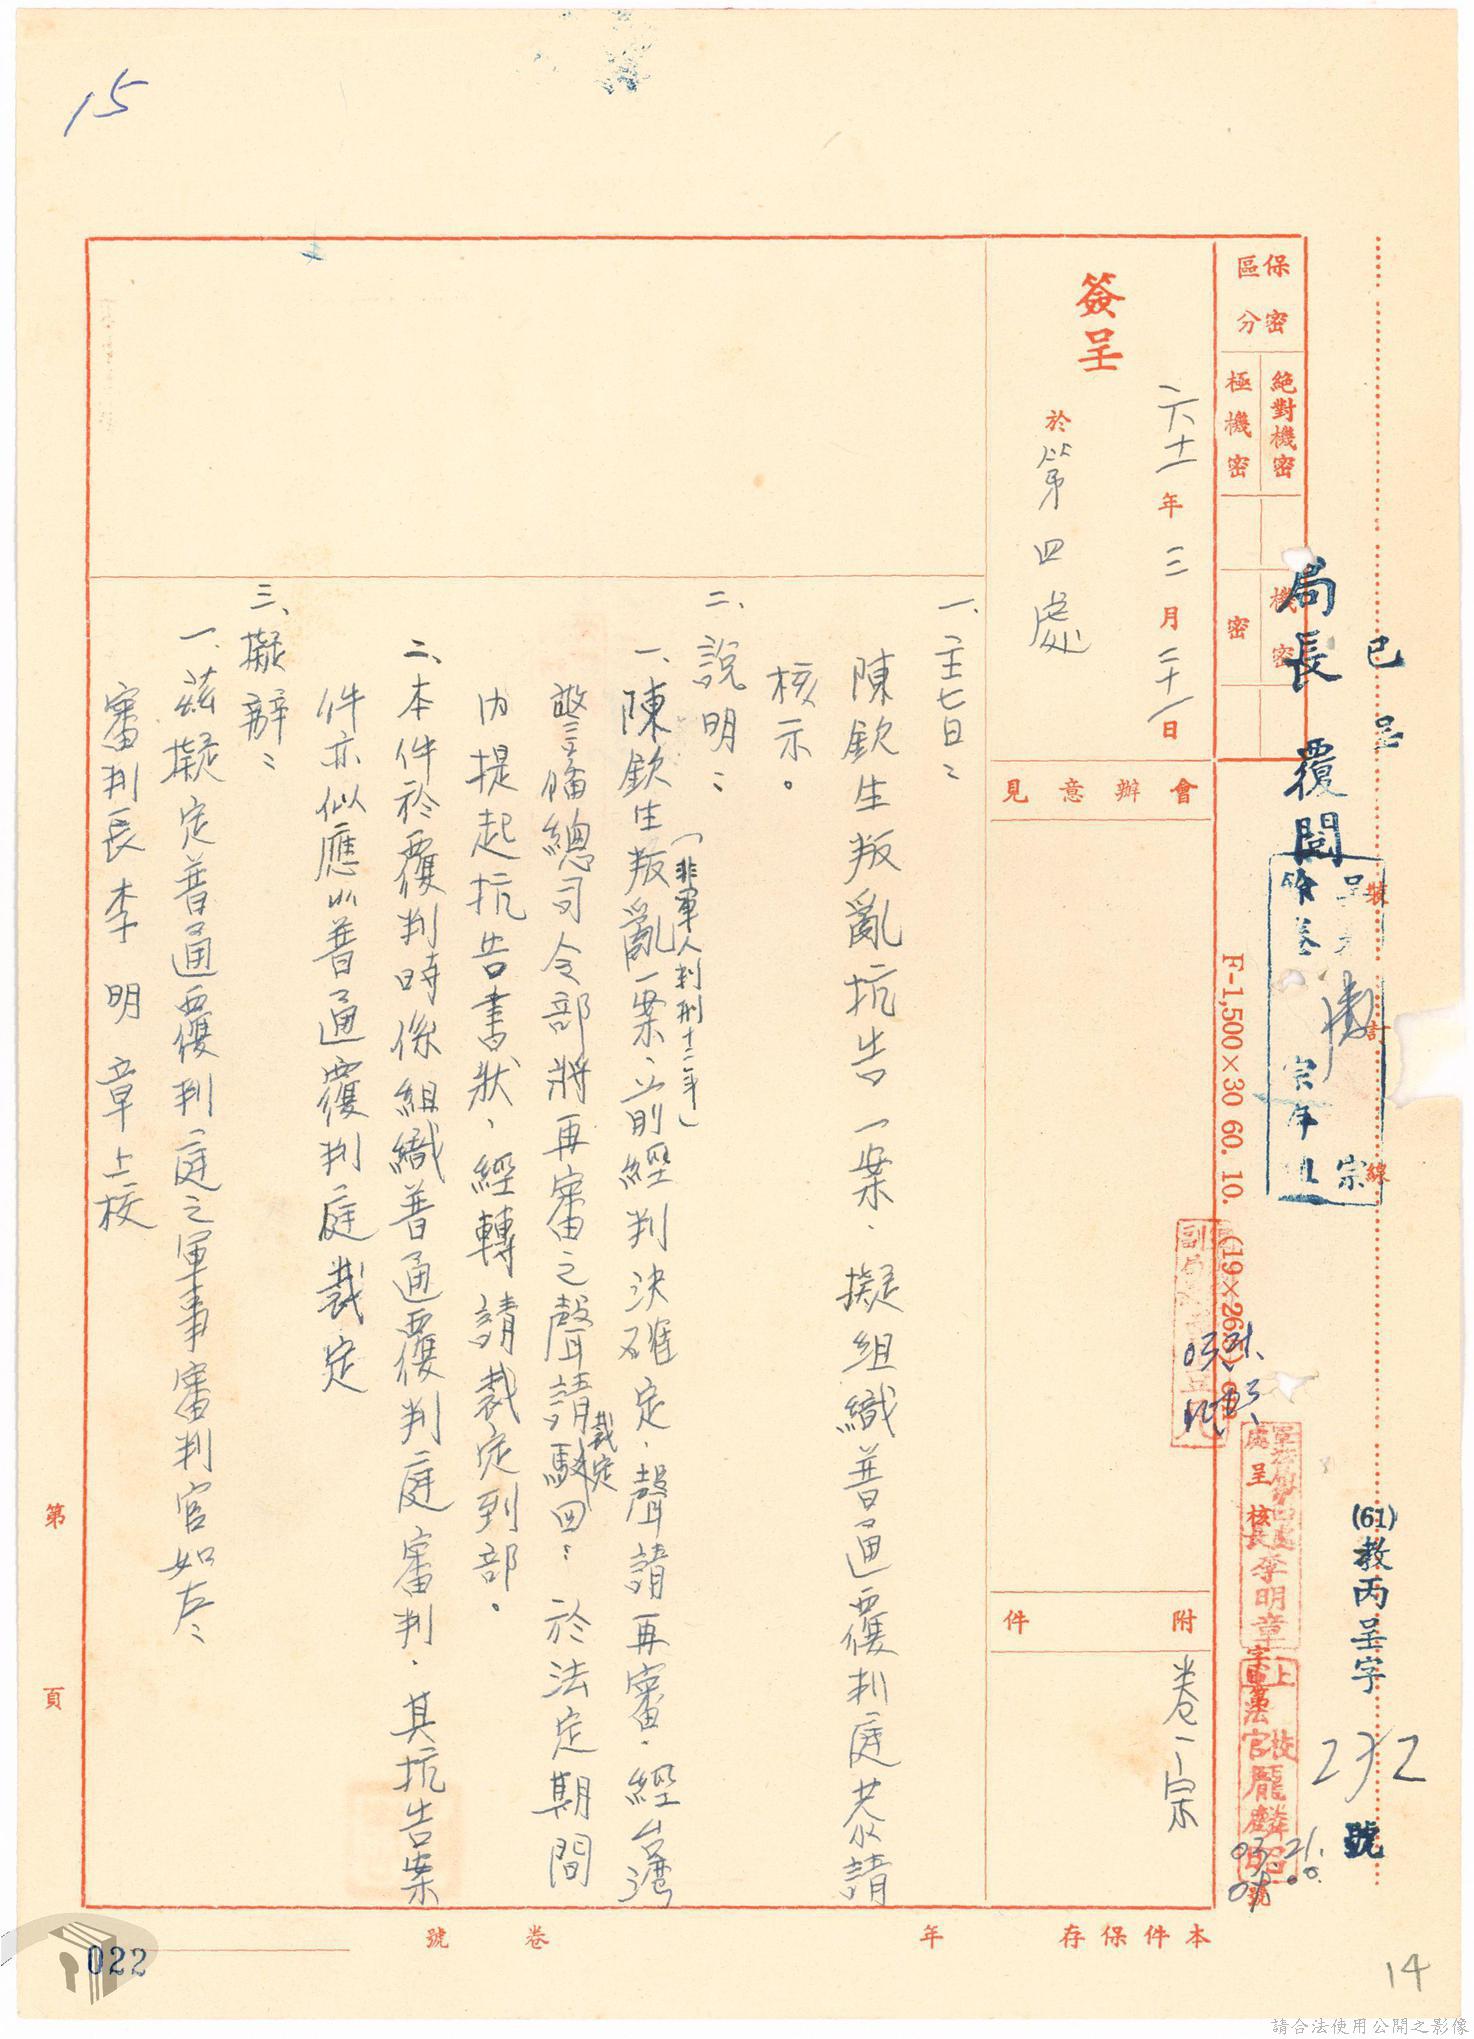 15
已呈
局長覆閱
裝
訂
線
(61)教丙呈字232號
F-1,500×30 60. 10.
保密區分
絕對機密
極機密
機密
密
簽呈
六十一年三月二十一日
於第四處
會辦意見
附件
卷一宗
軍法第四處處長李明章
上校軍法官龐麟昭
呈核
03.21.
一、主旨：
陳欽生叛亂抗告一案、擬組織普通覆判庭恭請
核示。
二、說明：
(非軍人判刑十二年)
一、陳欽生叛亂一案、前經判決確定、聲請再審、經台灣
警備總司令部將再審之聲請裁定駁回：於法定期間
內提起抗告書狀、經轉請裁定到部。
二、本件於覆判時係組織普通覆判庭審判、其抗告案
件亦似應以普通覆判庭裁定
三、擬辦：
一、茲擬定普通覆判庭之軍事審判官如左：
審判長李明章上校
第 頁
本件保存 年 卷 號
022
14
請合法使用公開之影像